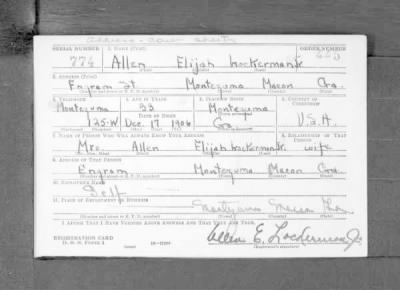 SERIAL NUMBER 1. NAME (Print) ORDER NUMBER
77½ Allen Elijah Lockerman Jr.
2. ADDRESS (Print)
Engram St Montezuma Macon Ga.
3. TELEPHONE 4. AGE IN YEARS 5. PLACE OF BIRTH 6. COUNTRY OF CITIZENSHIP
Montezuma 33 Montezuma
DATE OF BIRTH
125-W Dec. 17 1906 Ga. U.S.A.
7. NAME OF PERSON WHO WILL ALWAYS KNOW YOUR ADDRESS 8. RELATIONSHIP OF THAT PERSON
Mrs. Allen Elijah Lockerman Jr. wife
9. ADDRESS OF THAT PERSON
Engram Montezuma Macon Ga.
10. EMPLOYER'S NAME
Self
11. PLACE OF EMPLOYMENT OR BUSINESS
Montezuma Macon Ga.
I AFFIRM THAT I HAVE VERIFIED ABOVE ANSWERS AND THAT THEY ARE TRUE.
REGISTRATION CARD
D. S. S. Form 1 Allen E. Lockerman Jr.